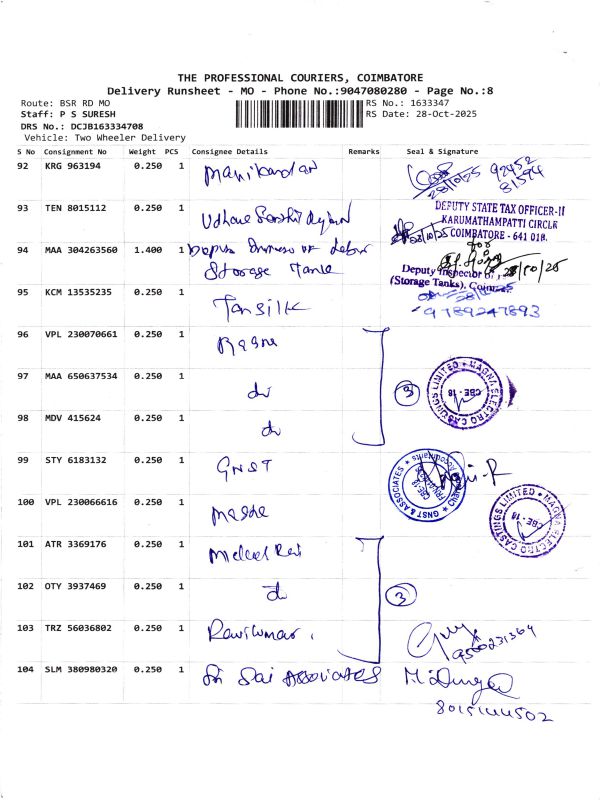 THE PROFESSIONAL COURIERS, COIMBATORE
Delivery Runsheet - MO - Phone No.:9047080280 - Page No.:8
Route: BSR RD MO
Staff: P S SURESH
DRS No.: DCJB163334708
Vehicle: Two Wheeler Delivery
RS No.: 1633347
RS Date: 28-Oct-2025
S No Consignment No Weight PCS Consignee Details Remarks Seal & Signature
92 KRG 963194 0.250 1 Manikandan
28/10/25 92452
81594
93 TEN 8015112 0.250 1
DEPUTY STATE TAX OFFICER-II
KARUMATHAMPATTI CIRCLE
COIMBATORE - 641 018.
28/10/25
94 MAA 304263560 1.400 1
Storage Tank
for
28/10/25
Deputy Inspector of
(Storage Tanks),
95 KCM 13535235 0.250 1 Tansilk
9789247893
96 VPL 230070661 0.250 1 Magna
97 MAA 650637534 0.250 1 do
98 MDV 415624 0.250 1 do
3
MAGNA ELECTRO CASTINGS LIMITED
CBE - 18
99 STY 6183132 0.250 1 GNST
GNST & ASSOCIATES
Chartered Accountants
100 VPL 230066616 0.250 1 Magna
MAGNA ELECTRO CASTINGS LIMITED
CBE - 18
101 ATR 3369176 0.250 1
102 OTY 3937469 0.250 1 do
3
103 TRZ 56036802 0.250 1 Ravikumar.
9500231364
104 SLM 380980320 0.250 1 Sri Sai Associates
8015144502